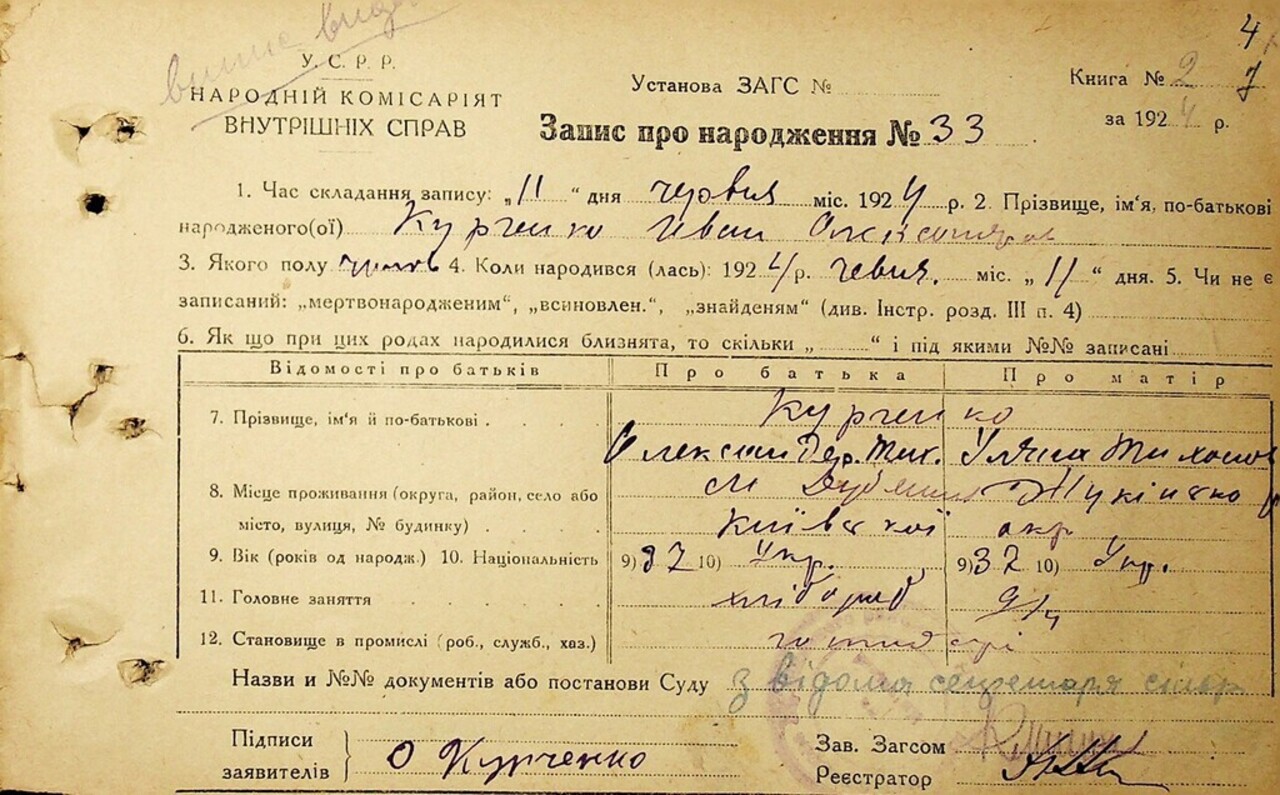 4
У. С. Р. Р.
НАРОДНІЙ КОМІСАРІЯТ
ВНУТРІШНІХ СПРАВ
Установа ЗАГС №
Книга № 2
за 1924 р.
Запис про народження № 33
1. Час складання запису: „11“ дня червня міс. 1924 р. 2. Прізвище, ім'я, по-батькові
народженого(ої) Курченко Іван Олександров
3. Якого полу чолов 4. Коли народився (лась): 1924 р. червня. міс. „11“ дня. 5. Чи не є
записаний: „мертвонародженим“, „всиновлен.“, „знайденям“ (див. Інстр. розд. III п. 4)
6. Як що при цих родах народилися близнята, то скільки „ “ і під якими №№ записані
Відомості про батьків Про батька Про матір
7. Прізвище, ім'я й по-батькові Курченко
Олександер. Тих. Уляна Тихонов
8. Місце проживання (округа, район, село або
місто, вулиця, № будинку) Київської окр
9. Вік (років од народж.) 10. Національність 9) 37 10) Укр. 9) 32 10) Укр.
11. Головне заняття хлібороб
12. Становище в промислі (роб., служб., хаз.)
Назви и №№ документів або постанови Суду з відома секретаря сільр
Підписи
заявителів О Курченко
Зав. Загсом
Реєстратор